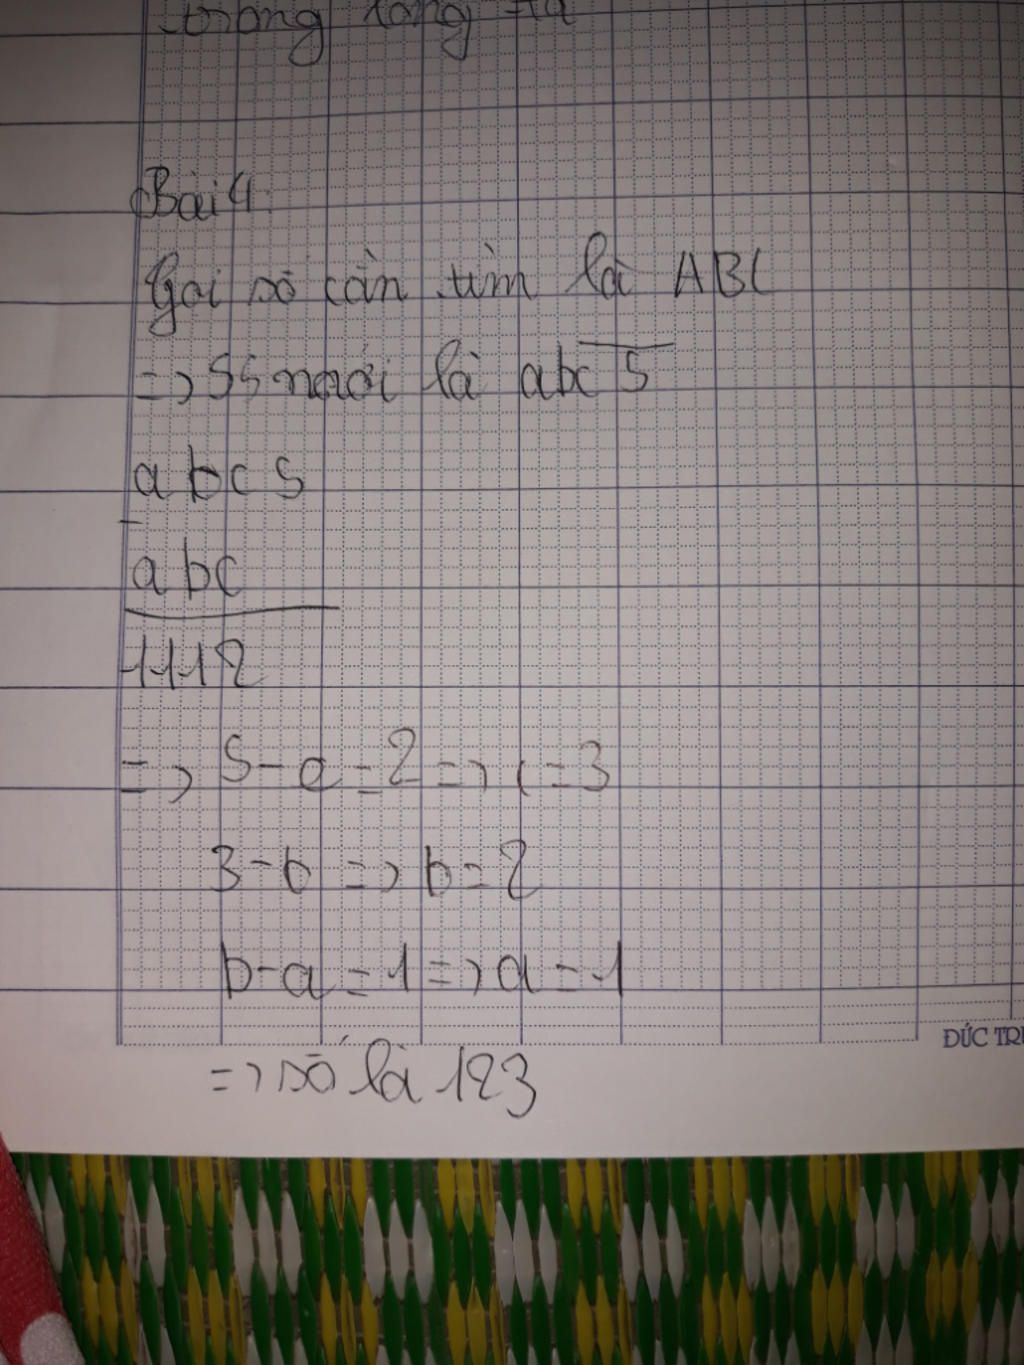 trong
Bài 4:
Gọi số cần tìm là ABC
=> SS mới là abc5
abc5
-
abc
1112
=> 5-a=2=>c=3
3-b=>b=2
b-a=1=>a=1
ĐỨC TR
=> số là 123